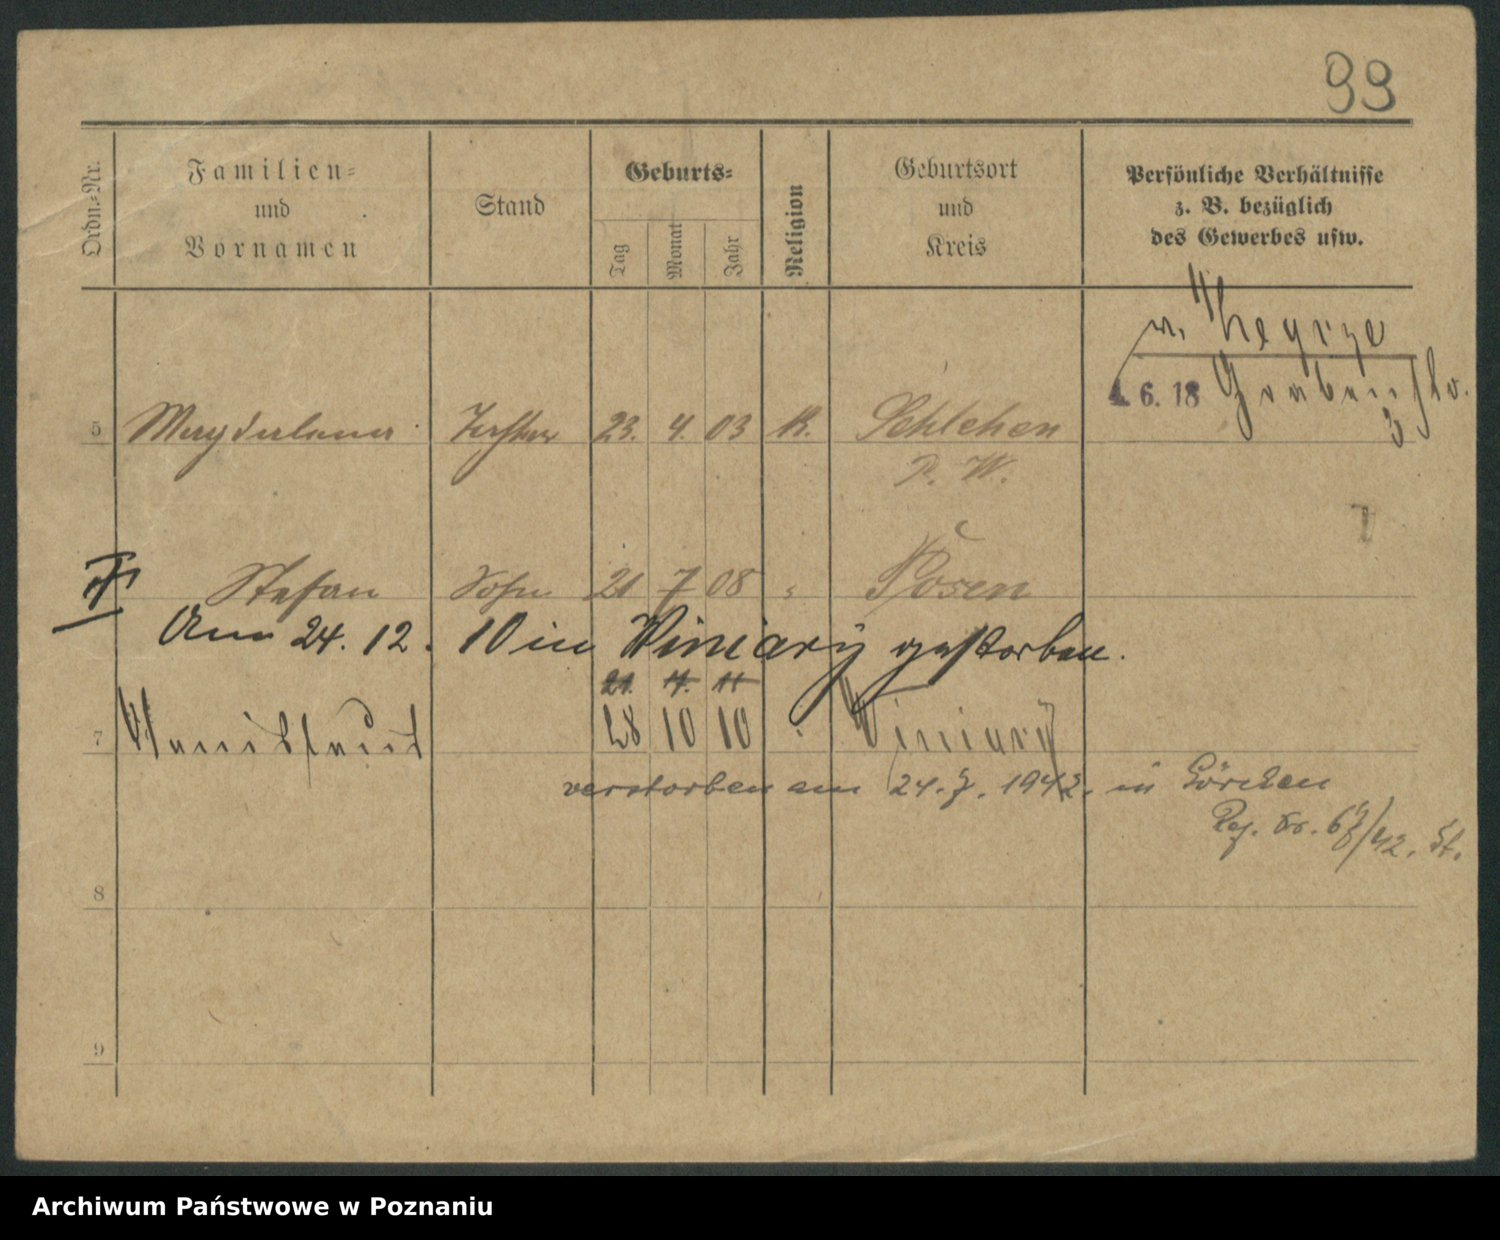 99
Ordn.-Nr.
Familien-
und
Vornamen
Stand
Geburts-
Tag
Monat
Jahr
Religion
Geburtsort
und
Kreis
Persönliche Verhältnisse
z. B. bezüglich
des Gewerbes usw.
n. Zegrze
6. 18 Grabenstr.
3
5 Magdalena Tochter 23. 4. 03 K. Schlehen
P. W.
Stefan Sohn 21 7 08 Posen
Am 24. 12. 10 in Winiary gestorben.
21. 4. 11
7 Stanislaus 28 10 10 Winiary
verstorben am 24. 3. 1942. in
Reg. Nr. /42. St.
8
9
Archiwum Państwowe w Poznaniu